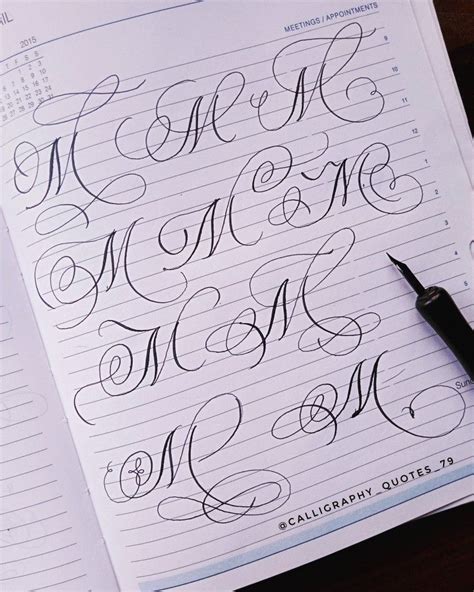 2015
MEETINGS / APPOINTMENTS
9
10
11
12
1
2
5
M M M
M M M
M M
M M
Sun
@CALLIGRAPHY_QUOTES_79